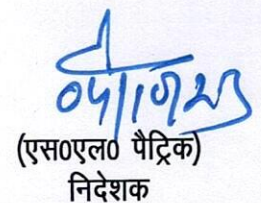 (एस0एल0 पैट्रिक)
निदेशक